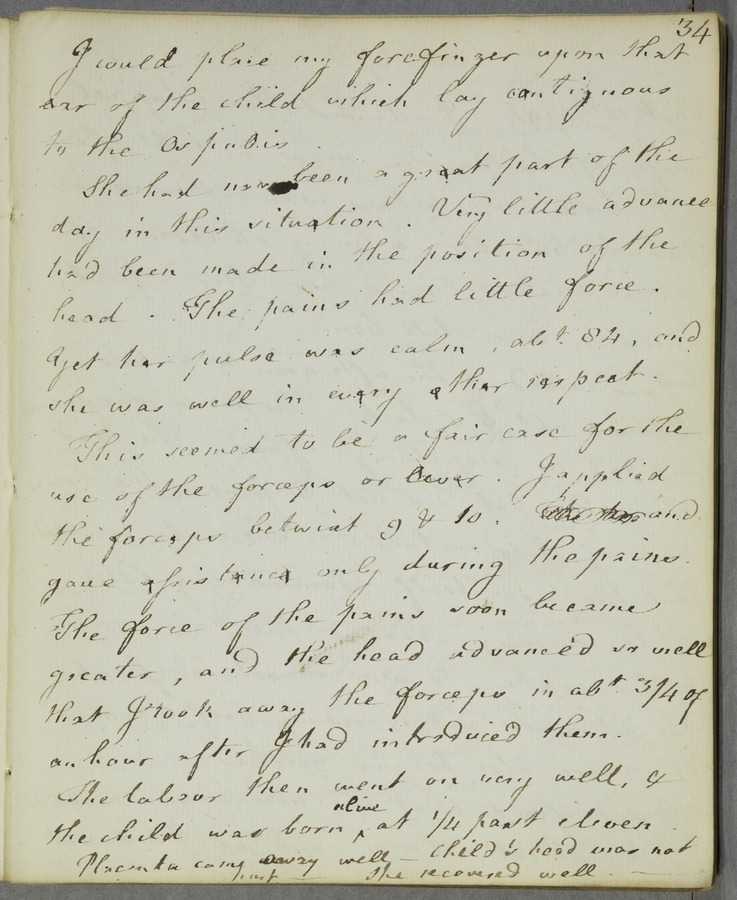 34
I could place my forefinger upon that
ear of the child which lay contiguous
to the Os pubis
She had now been a great part of the
day in this situation. Very little advance
had been made in the position of the
head. The pains had little force.
Yet her pulse was calm, abt. 84, and
she was well in every other respect.
This seemed to be a fair case for the
use of the forceps or lever. I applied
the forceps betwixt 9 & 10. and
gave assistance only during the pains.
The force of the pains soon became
greater, and the head advanced so well
that I took away the forceps in abt. 3/4 of
an hour after I had introduced them.
The labour then went on very well, &
alive
the child was born ^ at 1/4 past eleven
Placenta came away well – Child's head was not
hurt — She recovered well. —